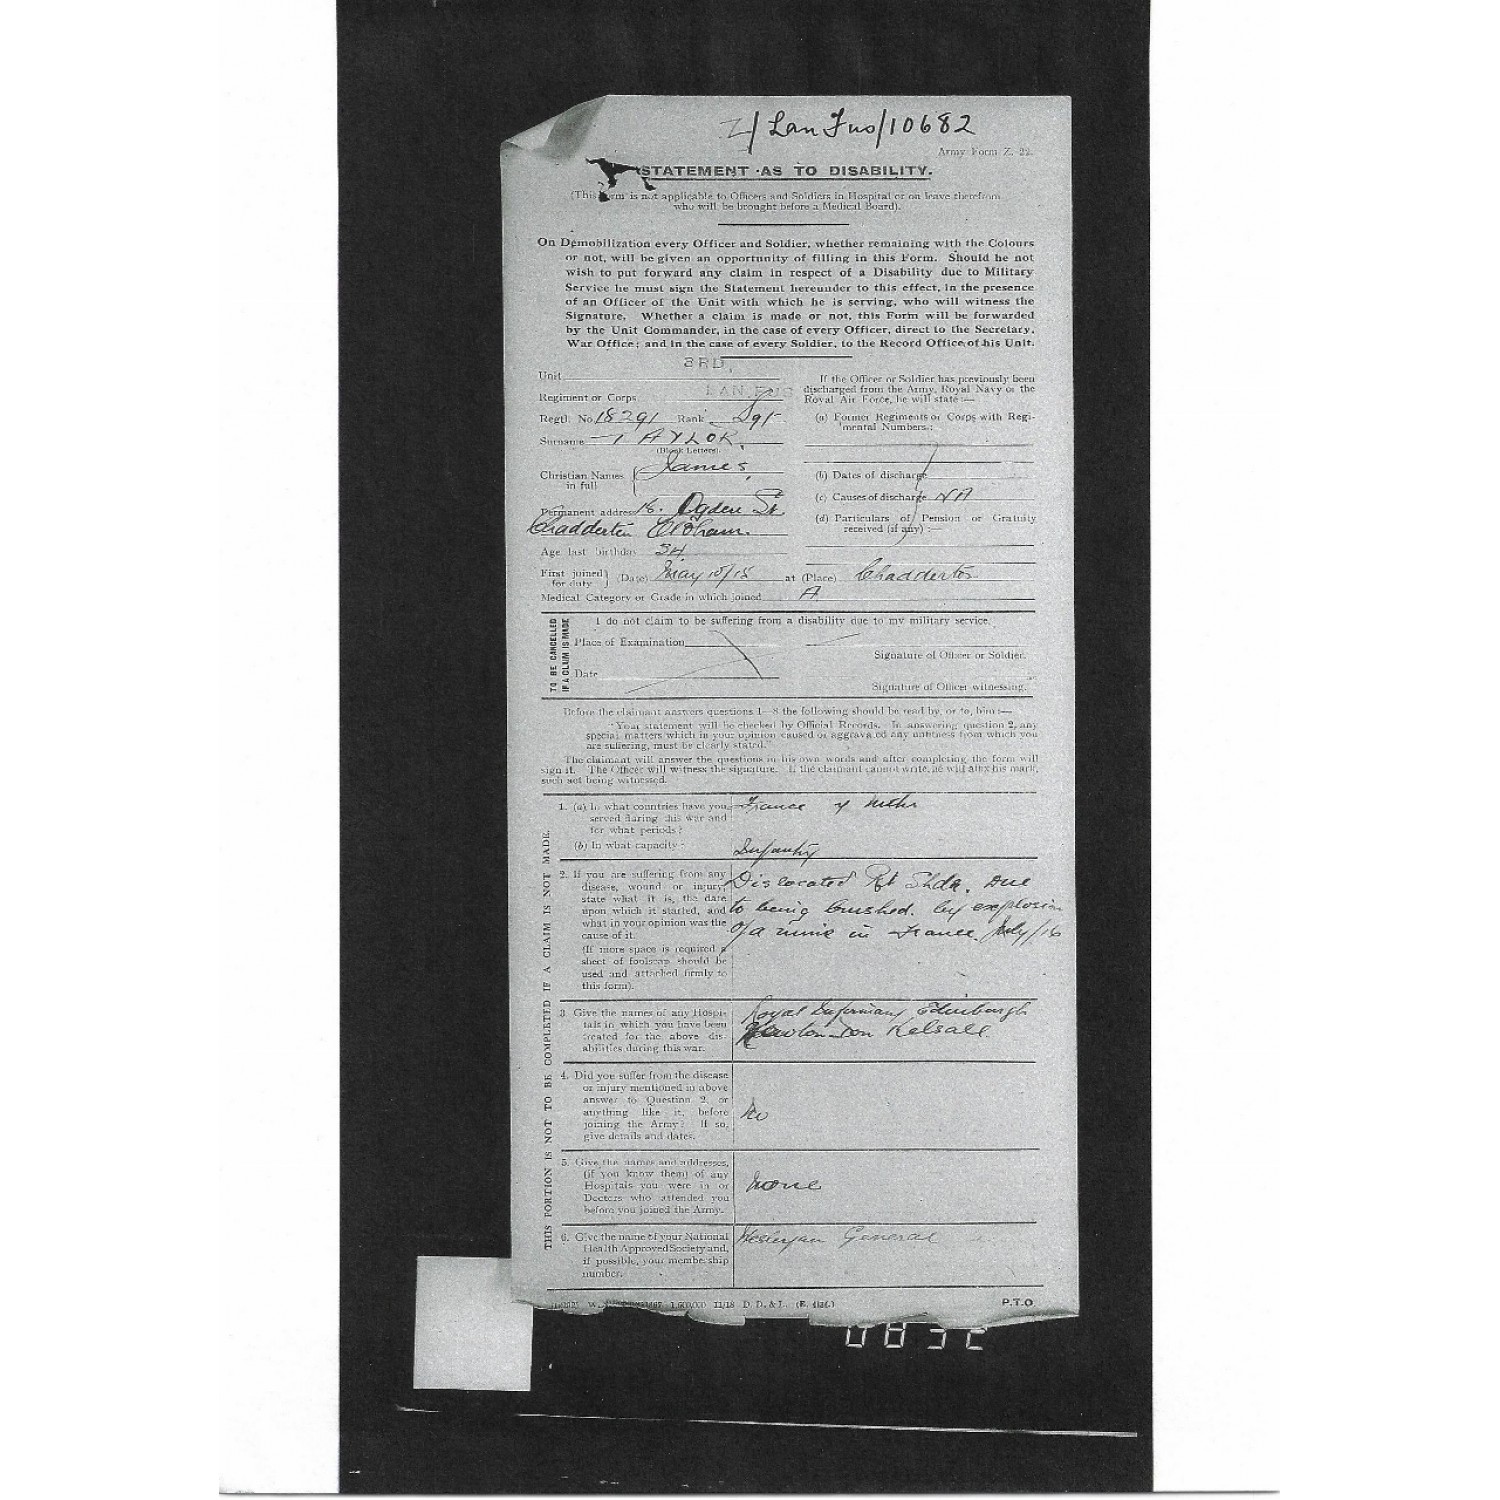 Z/ Lan Fus/10682
Army Form Z. 22.
STATEMENT AS TO DISABILITY.
(This Form is not applicable to Officers and Soldiers in Hospital or on leave therefrom
who will be brought before a Medical Board).
On Demobilization every Officer and Soldier, whether remaining with the Colours
or not, will be given an opportunity of filling in this Form. Should he not
wish to put forward any claim in respect of a Disability due to Military
Service he must sign the Statement hereunder to this effect, in the presence
of an Officer of the Unit with which he is serving, who will witness the
Signature. Whether a claim is made or not, this Form will be forwarded
by the Unit Commander, in the case of every Officer, direct to the Secretary,
War Office; and in the case of every Soldier, to the Record Office of his Unit.
Unit 3RD,
Regiment or Corps LAN FUS
Regtl. No. 18291 Rank Sgt
Surname TAYLOR.
(Block Letters)
Christian Names in full James
Permanent address 16. Ogden St.
Chadderton Oldham.
Age last birthday 34
If the Officer or Soldier has previously been
discharged from the Army, Royal Navy or the
Royal Air Force, he will state:—
(a) Former Regiments or Corps with Regi-
mental Numbers:
(b) Dates of discharge
(c) Causes of discharge NA
(d) Particulars of Pension or Gratuity
received (if any):—
First joined for duty (Date) May 10/15 at (Place) Chadderton
Medical Category or Grade in which joined A
TO BE CANCELLED
IF A CLAIM IS MADE
I do not claim to be suffering from a disability due to my military service.
Place of Examination
Signature of Officer or Soldier.
Date
Signature of Officer witnessing.
Before the claimant answers questions 1—8 the following should be read by, or to, him:—
"Your statement will be checked by Official Records. In answering question 2, any
special matters which in your opinion caused or aggravated any unfitness from which you
are suffering, must be clearly stated."
The claimant will answer the questions in his own words and after completing the form will
sign it. The Officer will witness the signature. If the claimant cannot write, he will affix his mark,
such act being witnessed.
THIS PORTION IS NOT TO BE COMPLETED IF A CLAIM IS NOT MADE.
1. (a) In what countries have you
served during this war and
for what periods?
France 4 mths
(b) In what capacity:
Infantry
2. If you are suffering from any
disease, wound or injury,
state what it is, the date
upon which it started, and
what in your opinion was the
cause of it.
(If more space is required a
sheet of foolscap should be
used and attached firmly to
this form).
Dislocated Rt Shdr. Due
to being crushed. by explosion
of a mine in France. July/16
3. Give the names of any Hospi-
tals in which you have been
treated for the above dis-
abilities during this war.
Royal Infirmary Edinburgh
Kelsall.
4. Did you suffer from the disease
or injury mentioned in above
answer to Question 2, or
anything like it, before
joining the Army? If so,
give details and dates.
No
5. Give the names and addresses,
(if you know them) of any
Hospitals you were in or
Doctors who attended you
before you joined the Army.
None
6. Give the name of your National
Health Approved Society and,
if possible, your membership
number.
Wesleyan General
1,600,000 11/18 D. D. & L.
P.T.O.
0832